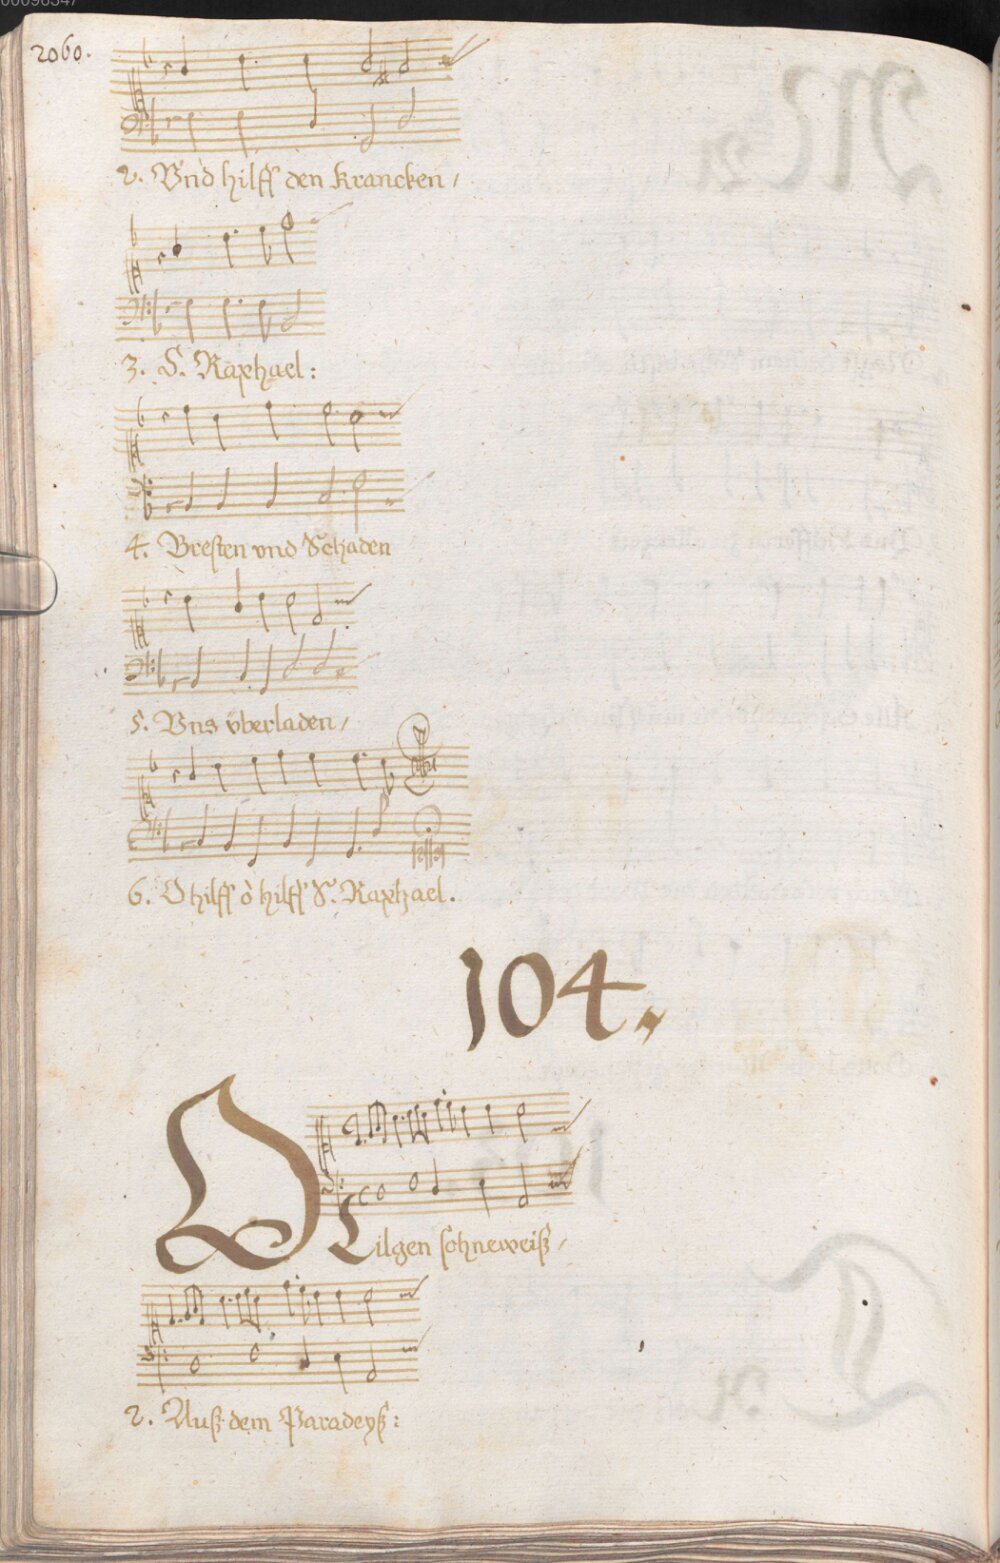 2060.
2. Vnd hilff den Krancken,
3. S. Raphael:
4. Bresten vnd Schaden
5. Vns vberladen,
6. O hilff ò hilff S. Raphael.
104.
O Lilgen schneweiß,
2. Auß dem Paradeyß: